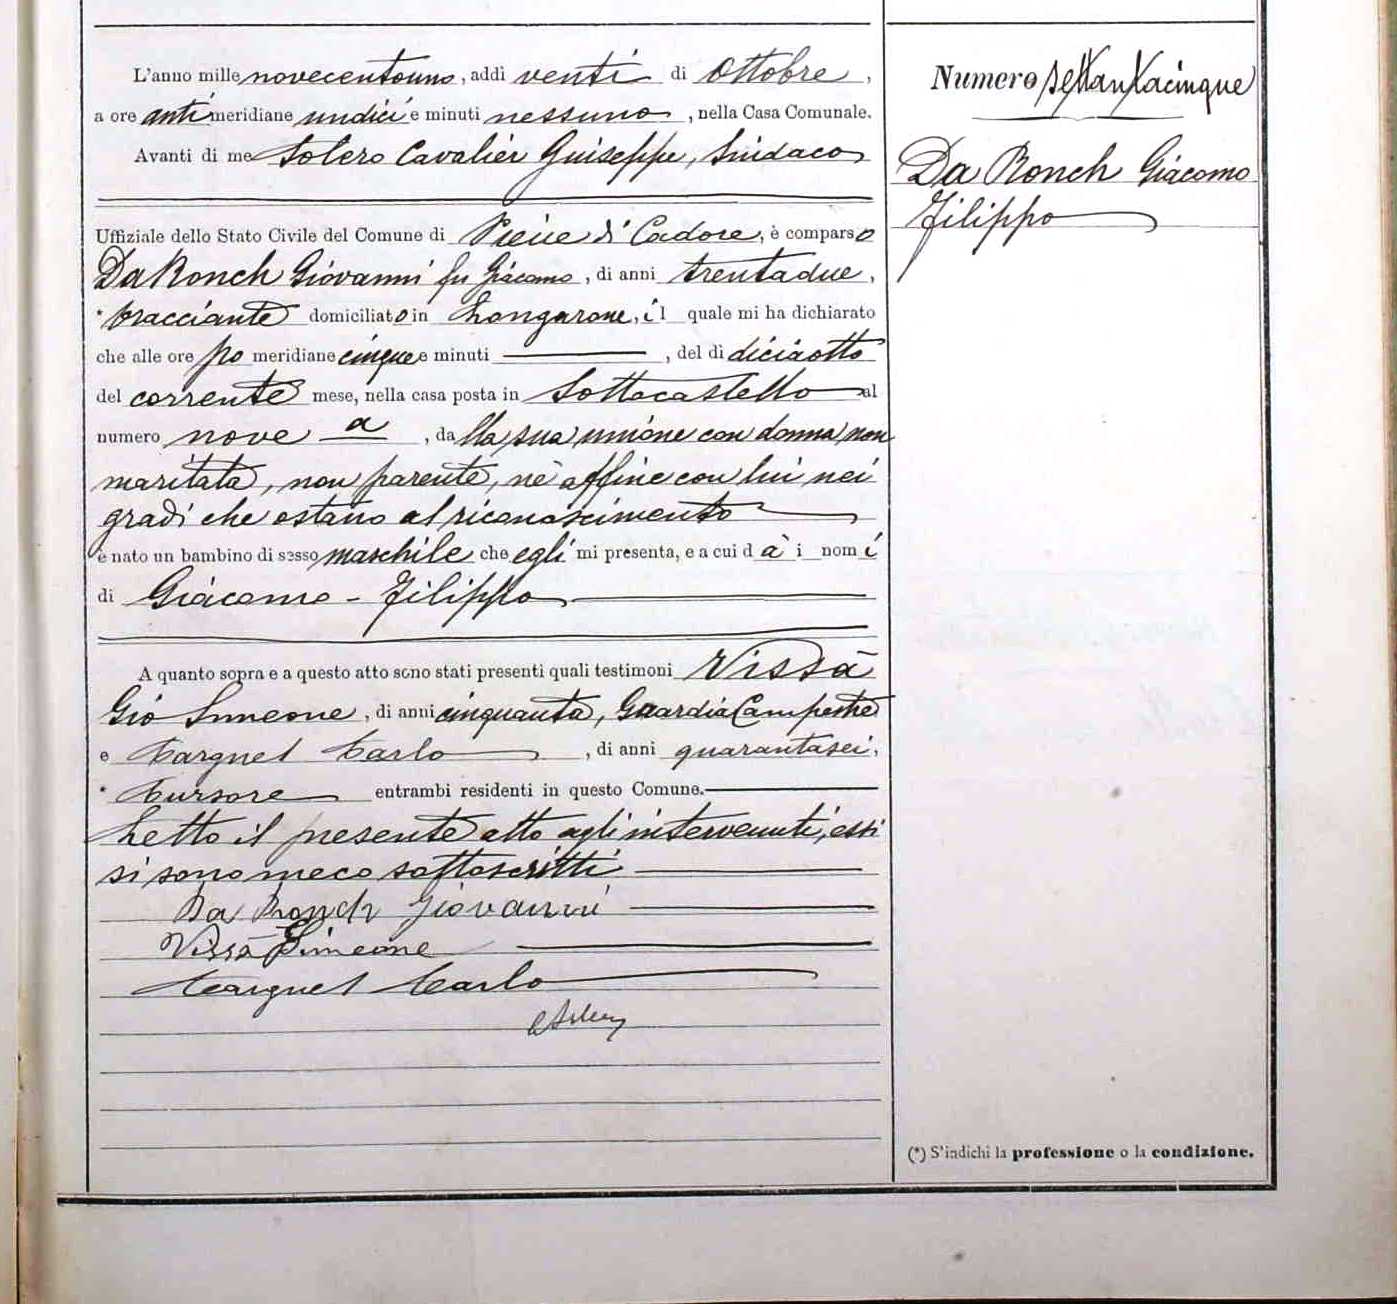 L'anno mille novecentouno, addì venti di Ottobre,
a ore anti meridiane undici e minuti nessuno, nella Casa Comunale.
Avanti di me Solero Cavalier Guiseppe, Sindaco
Uffiziale dello Stato Civile del Comune di Pieve di Cadore, è comparso
Da Ronch Giovanni fu Giacomo, di anni trentadue,
* bracciante domiciliato in Longarone, il quale mi ha dichiarato
che alle ore po meridiane cinque e minuti , del dì diciaotto
del corrente mese, nella casa posta in Sottocastello al
numero nove a, dalla sua unione con donna non
maritata, non parente, nè affine con lui nei
gradi che ostano al riconoscimento
è nato un bambino di sesso maschile che egli mi presenta, e a cui dà i nomi
di Giacomo - Filippo
A quanto sopra e a questo atto sono stati presenti quali testimoni Vissà
Gio Simeone, di anni cinquanta, Guardia Campestre
e Cargnel Carlo, di anni quarantasei,
* Cursore entrambi residenti in questo Comune.
Letto il presente atto agli intervenuti, essi
si sono meco sottoscritti
Da Ronch Giovanni
Vissà Simeone
Cargnel Carlo
Numero settantacinque
Da Ronch Giacomo
Filippo
(*) S'indichi la professione o la condizione.